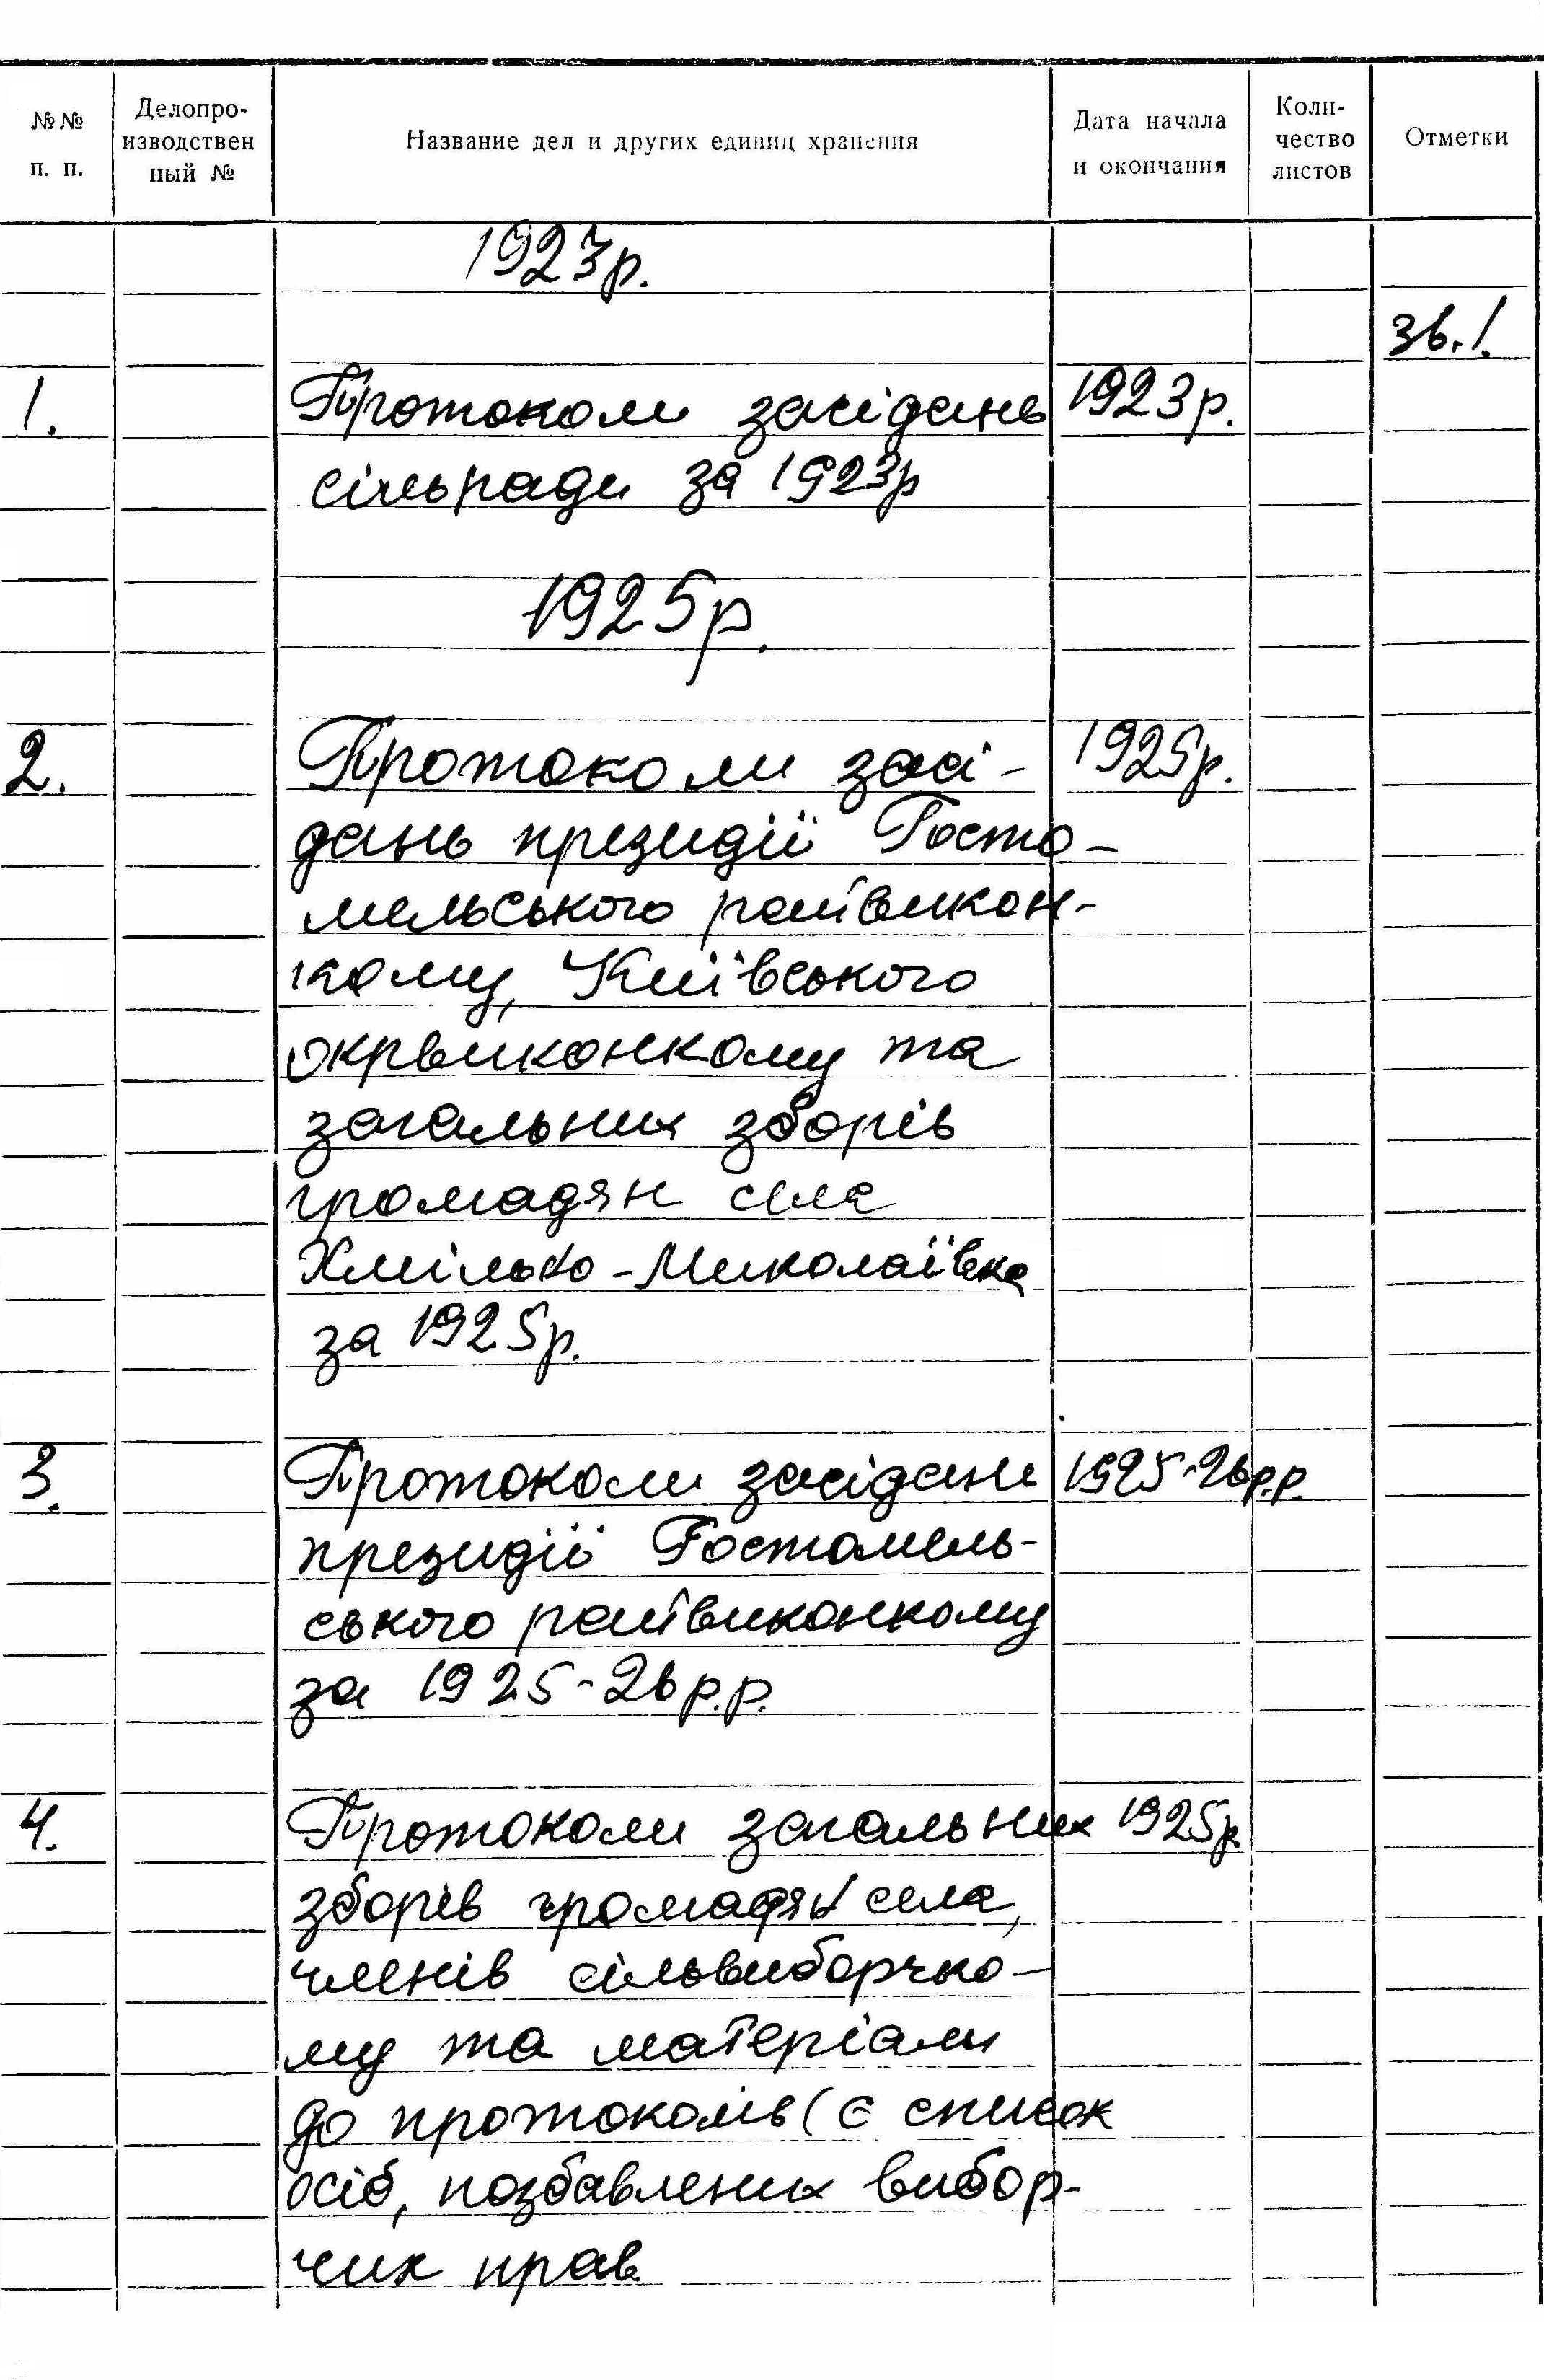 №№ п. п.
Делопро-
изводствен
ный №
Название дел и других единиц хранения
Дата начала
и окончания
Коли-
чество
листов
Отметки
1923р.
зв.1.
1. Протоколи засідань 1923р.
сільради за 1923р
1925р.
2. Протоколи засі- 1925р.
дань президії Госто-
мельського райвикон-
кому, Київського
окрвиконкому та
загальних зборів
громадян села
Хмілько-Миколаївка
за 1925р.
3. Протоколи засідань 1925-26р.р.
президії Гостомель-
ського райвиконкому
за 1925-26р.р.
4. Протоколи загальних 1925р.
зборів громадян села,
членів сільвиборчко-
му та матеріали
до протоколів (є список
осіб, позбавлених вибор-
чих прав